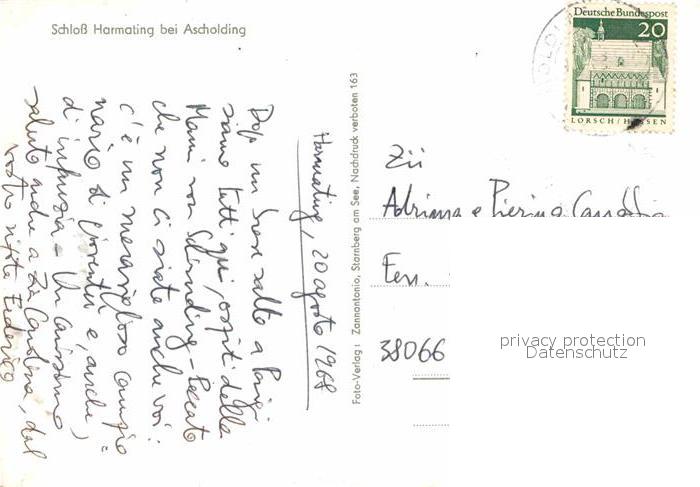 Schloß Harmating bei Ascholding
Deutsche Bundespost
20
LORSCH/HESSEN
Harmating, 20 agosto 1968
Dopo un breve salto a Parigi
siamo tutti qui, ospiti della
Mami von - Peccato
che non ci siate anche voi:
c'è un meraviglioso connubio
di gioventù e, anche,
di infanzia - Un carissimo
saluto anche a zia Carolina, dal
vostro nipote Federico
Foto-Verlag: Zannantonio, Starnberg am See, Nachdruck verboten 163
Zii
Adriana e Pierino
Ferr.
38066
privacy protection
Datenschutz